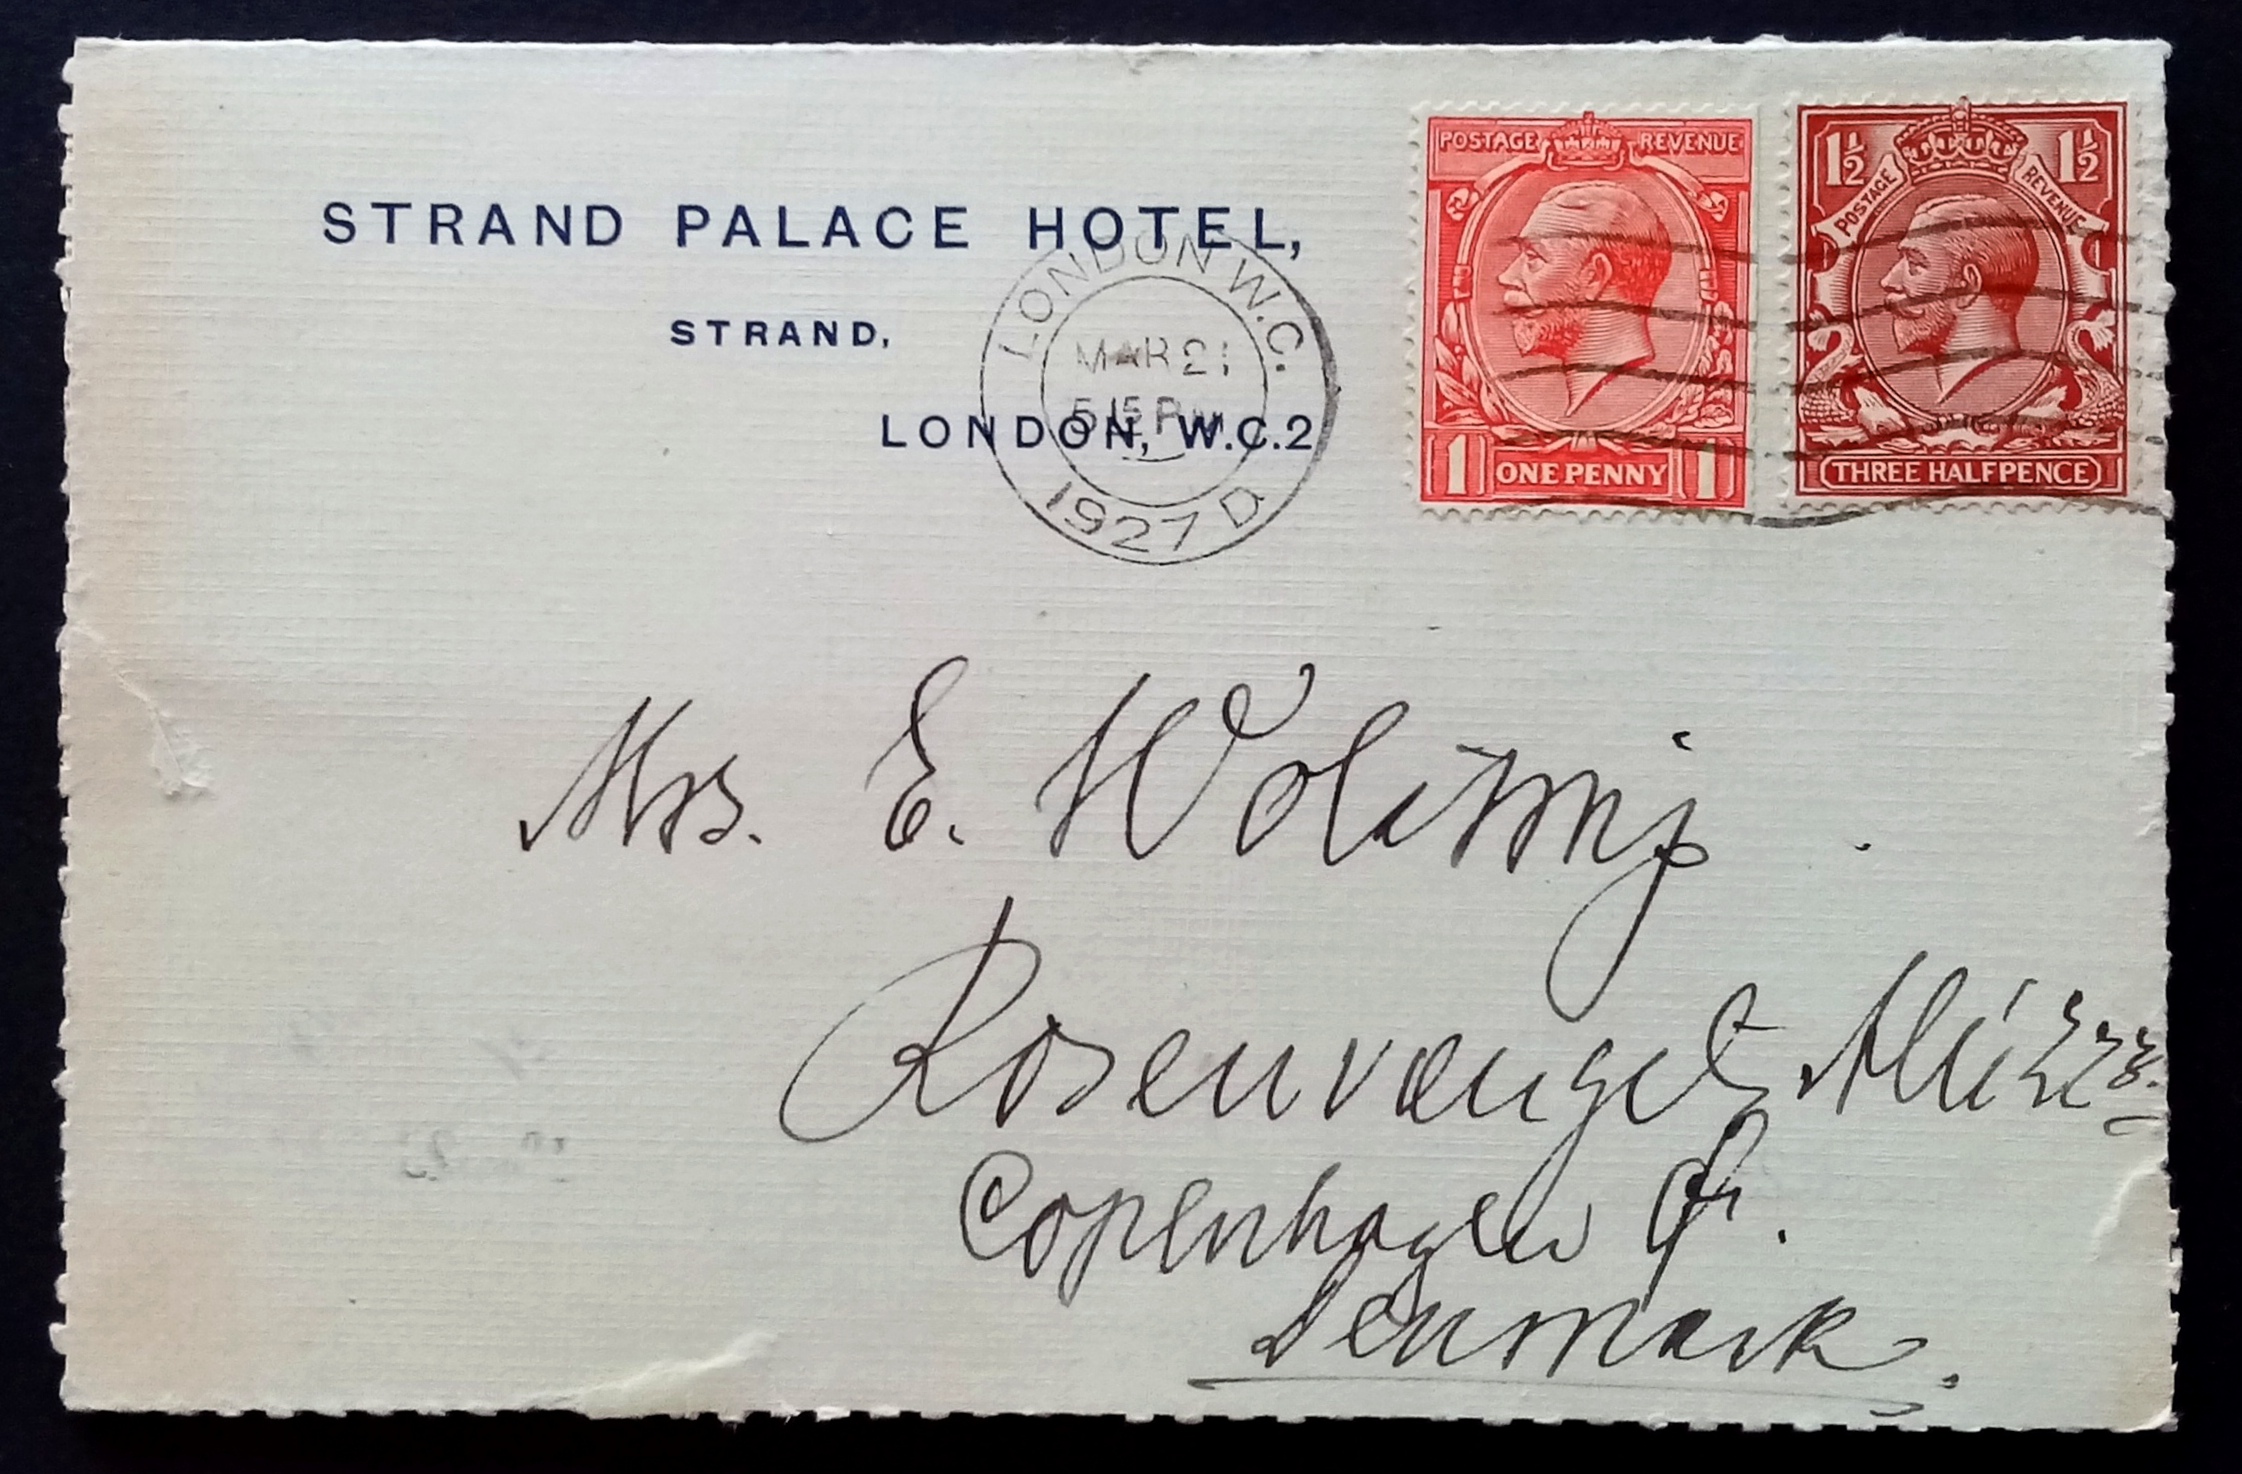 STRAND PALACE HOTEL,
STRAND,
LONDON, W.C.2
LONDON W.C.
MAR 21
5 15 PM
1927 D
POSTAGE REVENUE
1 ONE PENNY 1
1½ 1½
POSTAGE REVENUE
THREE HALFPENCE
Mrs. E.
Rosenvænget
Copenhagen
Denmark.